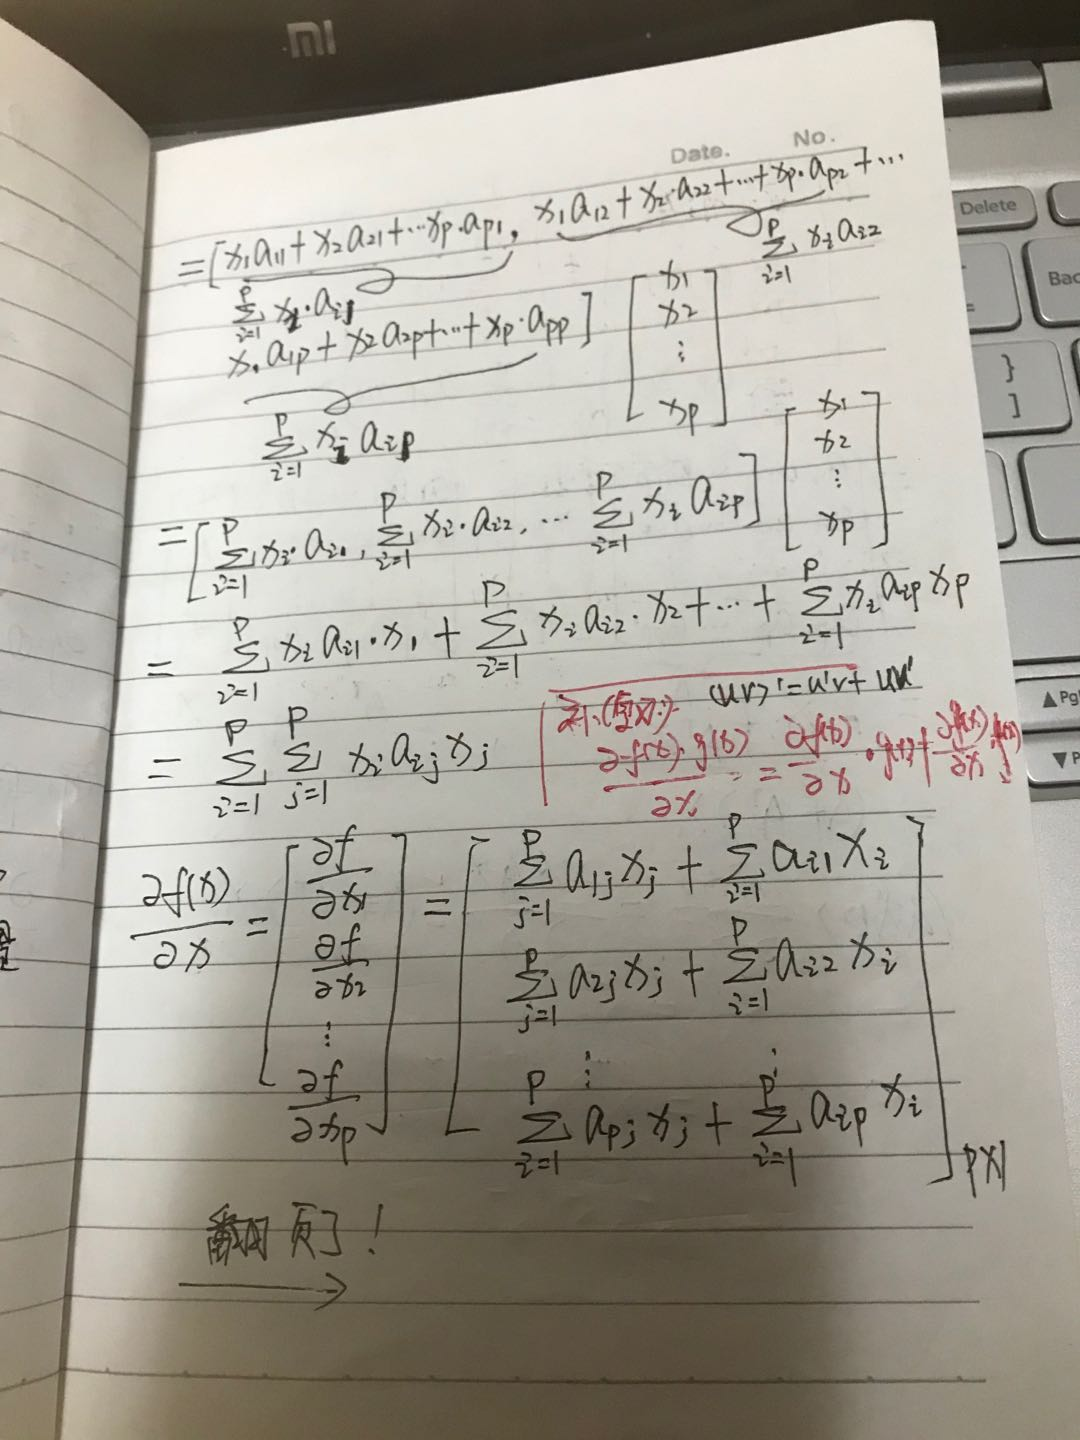 mi
Date. No.
Delete
= [x₁a₁₁ + x₂a₂₁ + ⋯ xp·ap₁, x₁a₁₂ + x₂·a₂₂ + ⋯ + xp·ap₂ + ⋯
∑ᵢ₌₁ᵖ xᵢ·aᵢ₁ ∑ᵢ₌₁ᵖ xᵢaᵢ₂
x₁a₁p + x₂a₂p + ⋯ + xp·app] [x₁ x₂ ⋮ xp]
∑ᵢ₌₁ᵖ xᵢ aᵢp
= [∑ᵢ₌₁ᵖ xᵢ·aᵢ₁, ∑ᵢ₌₁ᵖ xᵢ·aᵢ₂, ⋯ ∑ᵢ₌₁ᵖ xᵢ aᵢp] [x₁ x₂ ⋮ xp]
= ∑ᵢ₌₁ᵖ xᵢaᵢ₁·x₁ + ∑ᵢ₌₁ᵖ xᵢaᵢ₂·x₂ + ⋯ + ∑ᵢ₌₁ᵖ xᵢaᵢp xp
(uv)' = u'v + uv'
= ∑ᵢ₌₁ᵖ ∑ⱼ₌₁ᵖ xᵢaᵢⱼxⱼ
∂f(x)·g(x)/∂x = ∂f(x)/∂x · g(x) + ∂g(x)/∂x · f(x)
∂f(x)/∂x = [∂f/∂x₁ ∂f/∂x₂ ⋮ ∂f/∂xp] = [∑ⱼ₌₁ᵖ a₁ⱼxⱼ + ∑ᵢ₌₁ᵖ aᵢ₁xᵢ
∑ⱼ₌₁ᵖ a₂ⱼxⱼ + ∑ᵢ₌₁ᵖ aᵢ₂xᵢ
⋮ ⋮
∑ᵢ₌₁ᵖ apⱼxⱼ + ∑ᵢ₌₁ᵖ aᵢp xᵢ] p×1
翻页了!
}
]
▲Pg
▼P